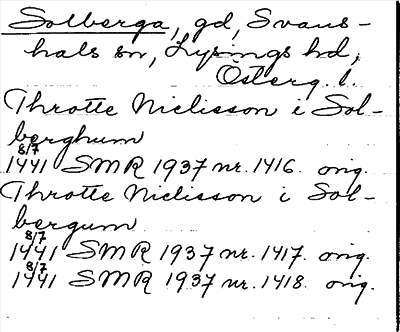 Solberga, gd, Svans-
hals sn, Lysings hd,
Österg. l.
Throtte Niclisson i Sol-
berghum
8/7
1441 SMR 1937 nr. 1416. orig.
Throtte Niclisson i Sol-
bergum
8/7
1441 SMR 1937 nr. 1417. orig.
8/7
1441 SMR 1937 nr. 1418. orig.